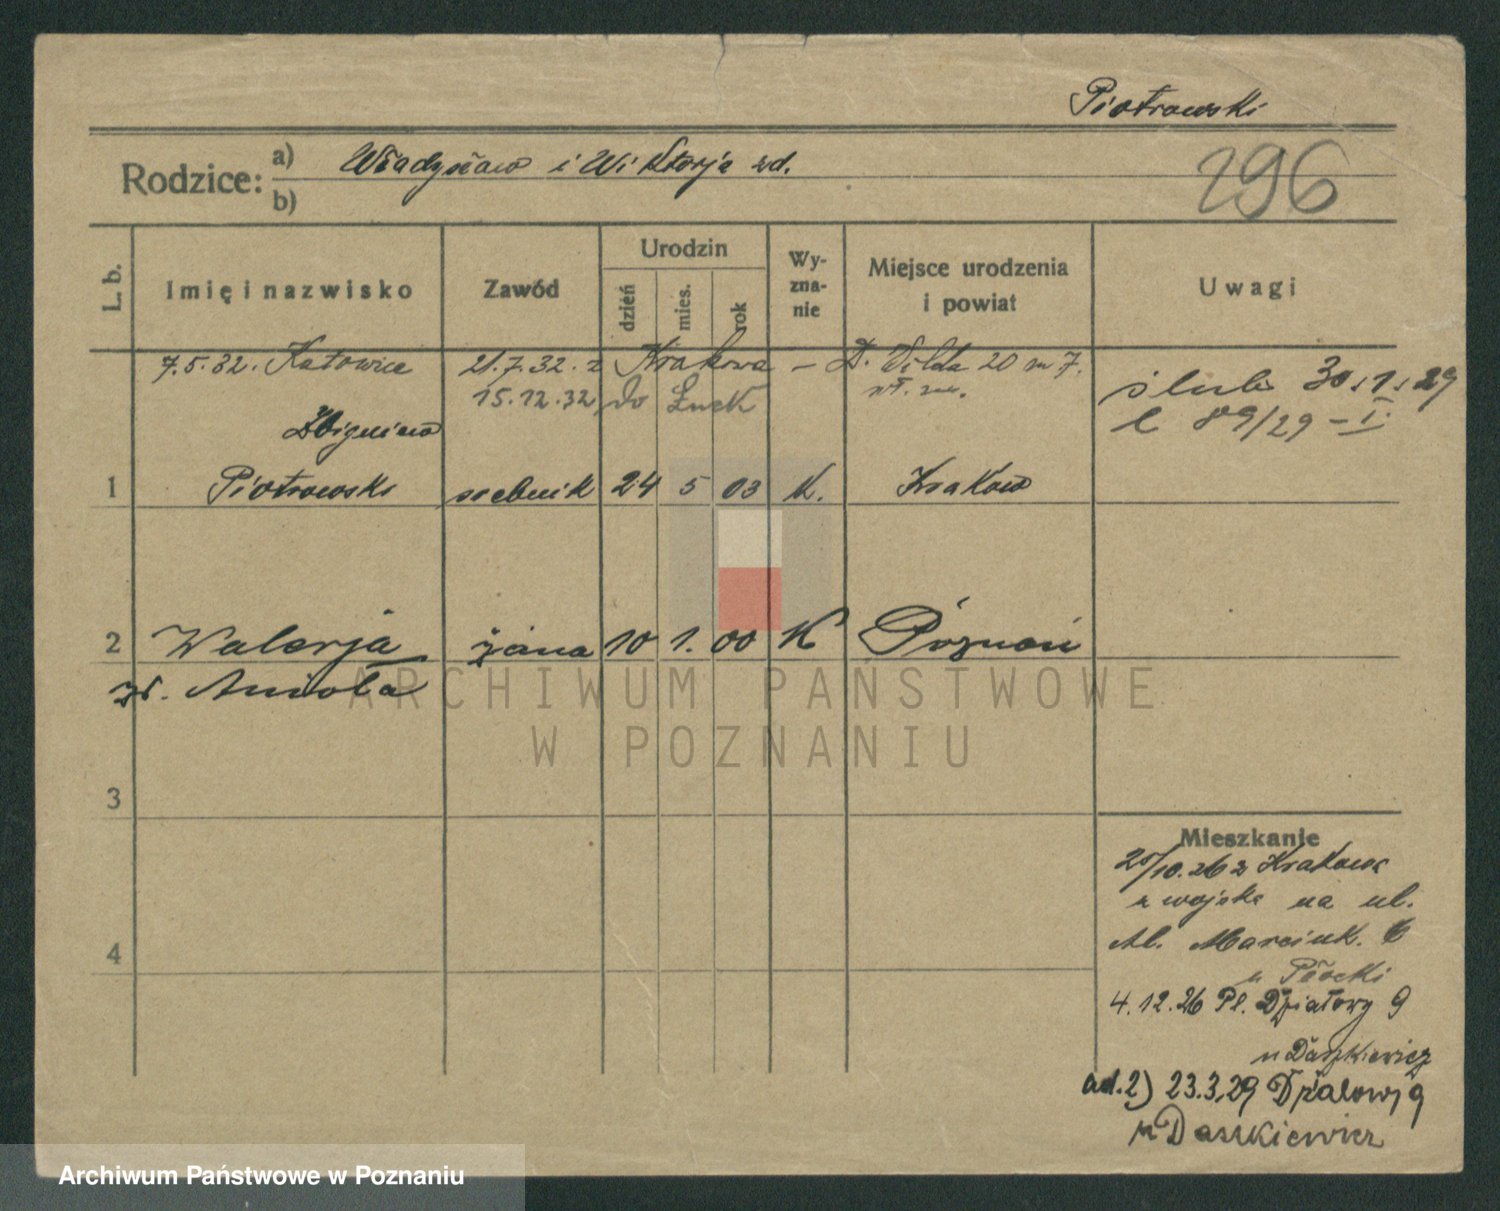 Piotrowski
296
Rodzice:
a) Władysław i Wiktorja zd.
b)
L. b.
Imię i nazwisko
Zawód
Urodzin
dzień
mies.
rok
Wy-
zna-
nie
Miejsce urodzenia
i powiat
Uwagi
7.5.32. Katowice 21.7.32. z Krakowa – D. Wilda 20 m 7.
15.12.32 do Łuck
ślub 30.1.29
l 89/29 – I.
Zbigniew
1 Piotrowski 24 5 03 K. Kraków
2 Walerja żona 10 1. 00 K Poznań
zd. Anioła
3
4
Mieszkanie
25/10.26 z Krakowa
z wojska na ul.
Al. Marcink. 6
u Płocki
4.12.26 Pl. Działowy 9
u Daszkiewicz
ad. 2) 23.3.29 Działowy 9
u Daszkiewicz
ARCHIWUM PAŃSTWOWE
W POZNANIU
Archiwum Państwowe w Poznaniu